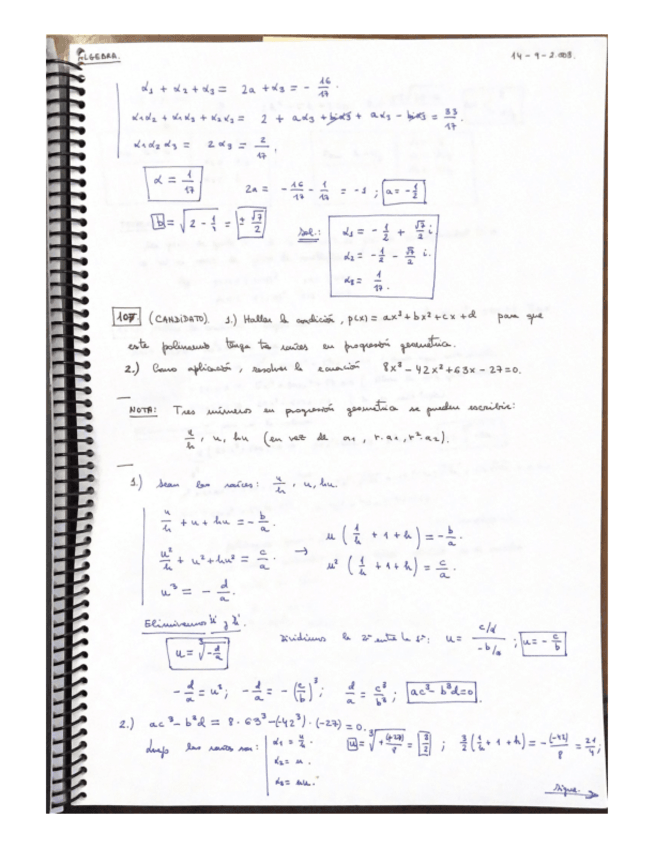 ALGEBRA. 14-9-2.003.
α1 + α2 + α3 = 2a + α3 = - 16/17.
α1α2 + α1α3 + α2α3 = 2 + aα3 + biα3 + aα3 - biα3 = 33/17.
α1α2α3 = 2α3 = 2/17.
α = 1/17 2a = - 16/17 - 1/17 = -1 ; a = - 1/2
b = √(2 - 1/4) = ± √7/2 Sol.: α1 = - 1/2 + √7/2 i.
α2 = - 1/2 - √7/2 i.
α3 = 1/17.
107 (CANDIDATO). 1.) Hallar la condición, p(x) = ax³ + bx² + cx + d para que
este polinomio tenga tres raíces en progresión geometrica.
2.) Como aplicación, resolver la ecuación 8x³ - 42x² + 63x - 27 = 0.
NOTA: Tres números en progresión geometrica se pueden escribir:
u/h, u, hu (en vez de a1, r·a1, r²·a1).
1.) Sean las raíces: u/h, u, hu.
u/h + u + hu = - b/a.
u²/h + u² + hu² = c/a.
u³ = - d/a.
→ u (1/h + 1 + h) = - b/a.
u² (1/h + 1 + h) = c/a.
Eliminamos 'u' y 'h'.
u = ∛(-d/a) Dividimos la 2ª entre la 1ª: u = (c/a)/(-b/a) ; u = - c/b
- d/a = u³; - d/a = - (c/b)³; d/a = c³/b³; ac³ - b³d = 0.
2.) ac³ - b³d = 8·63³ - (-42³)·(-27) = 0.
luego las raíces son: α1 = u/h. u = ∛(+(+27)/8) = 3/2 ; 3/2 (1/h + 1 + h) = - (-42)/8 = 21/4 ;
α2 = u.
α3 = hu.
Sigue. →